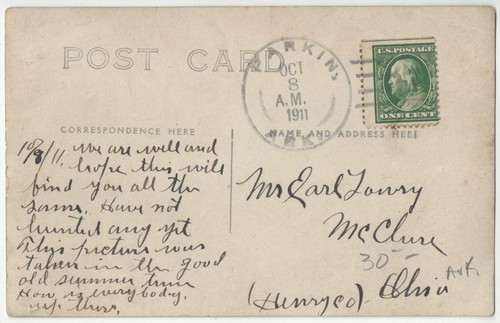 POST CARD
PARKIN,
OCT
8
A.M.
1911
ARK.
U.S. POSTAGE
ONE CENT
CORRESPONDENCE HERE
NAME AND ADDRESS HERE
10/8/11. We are well and
hope this will
find you all the
same. Have not
hunted any yet
This picture was
taken in the good
old summer time
How is everybody,
up there,
Mr Earl Lowry
McClure
30-
Ohio
Ark
(Henry co)